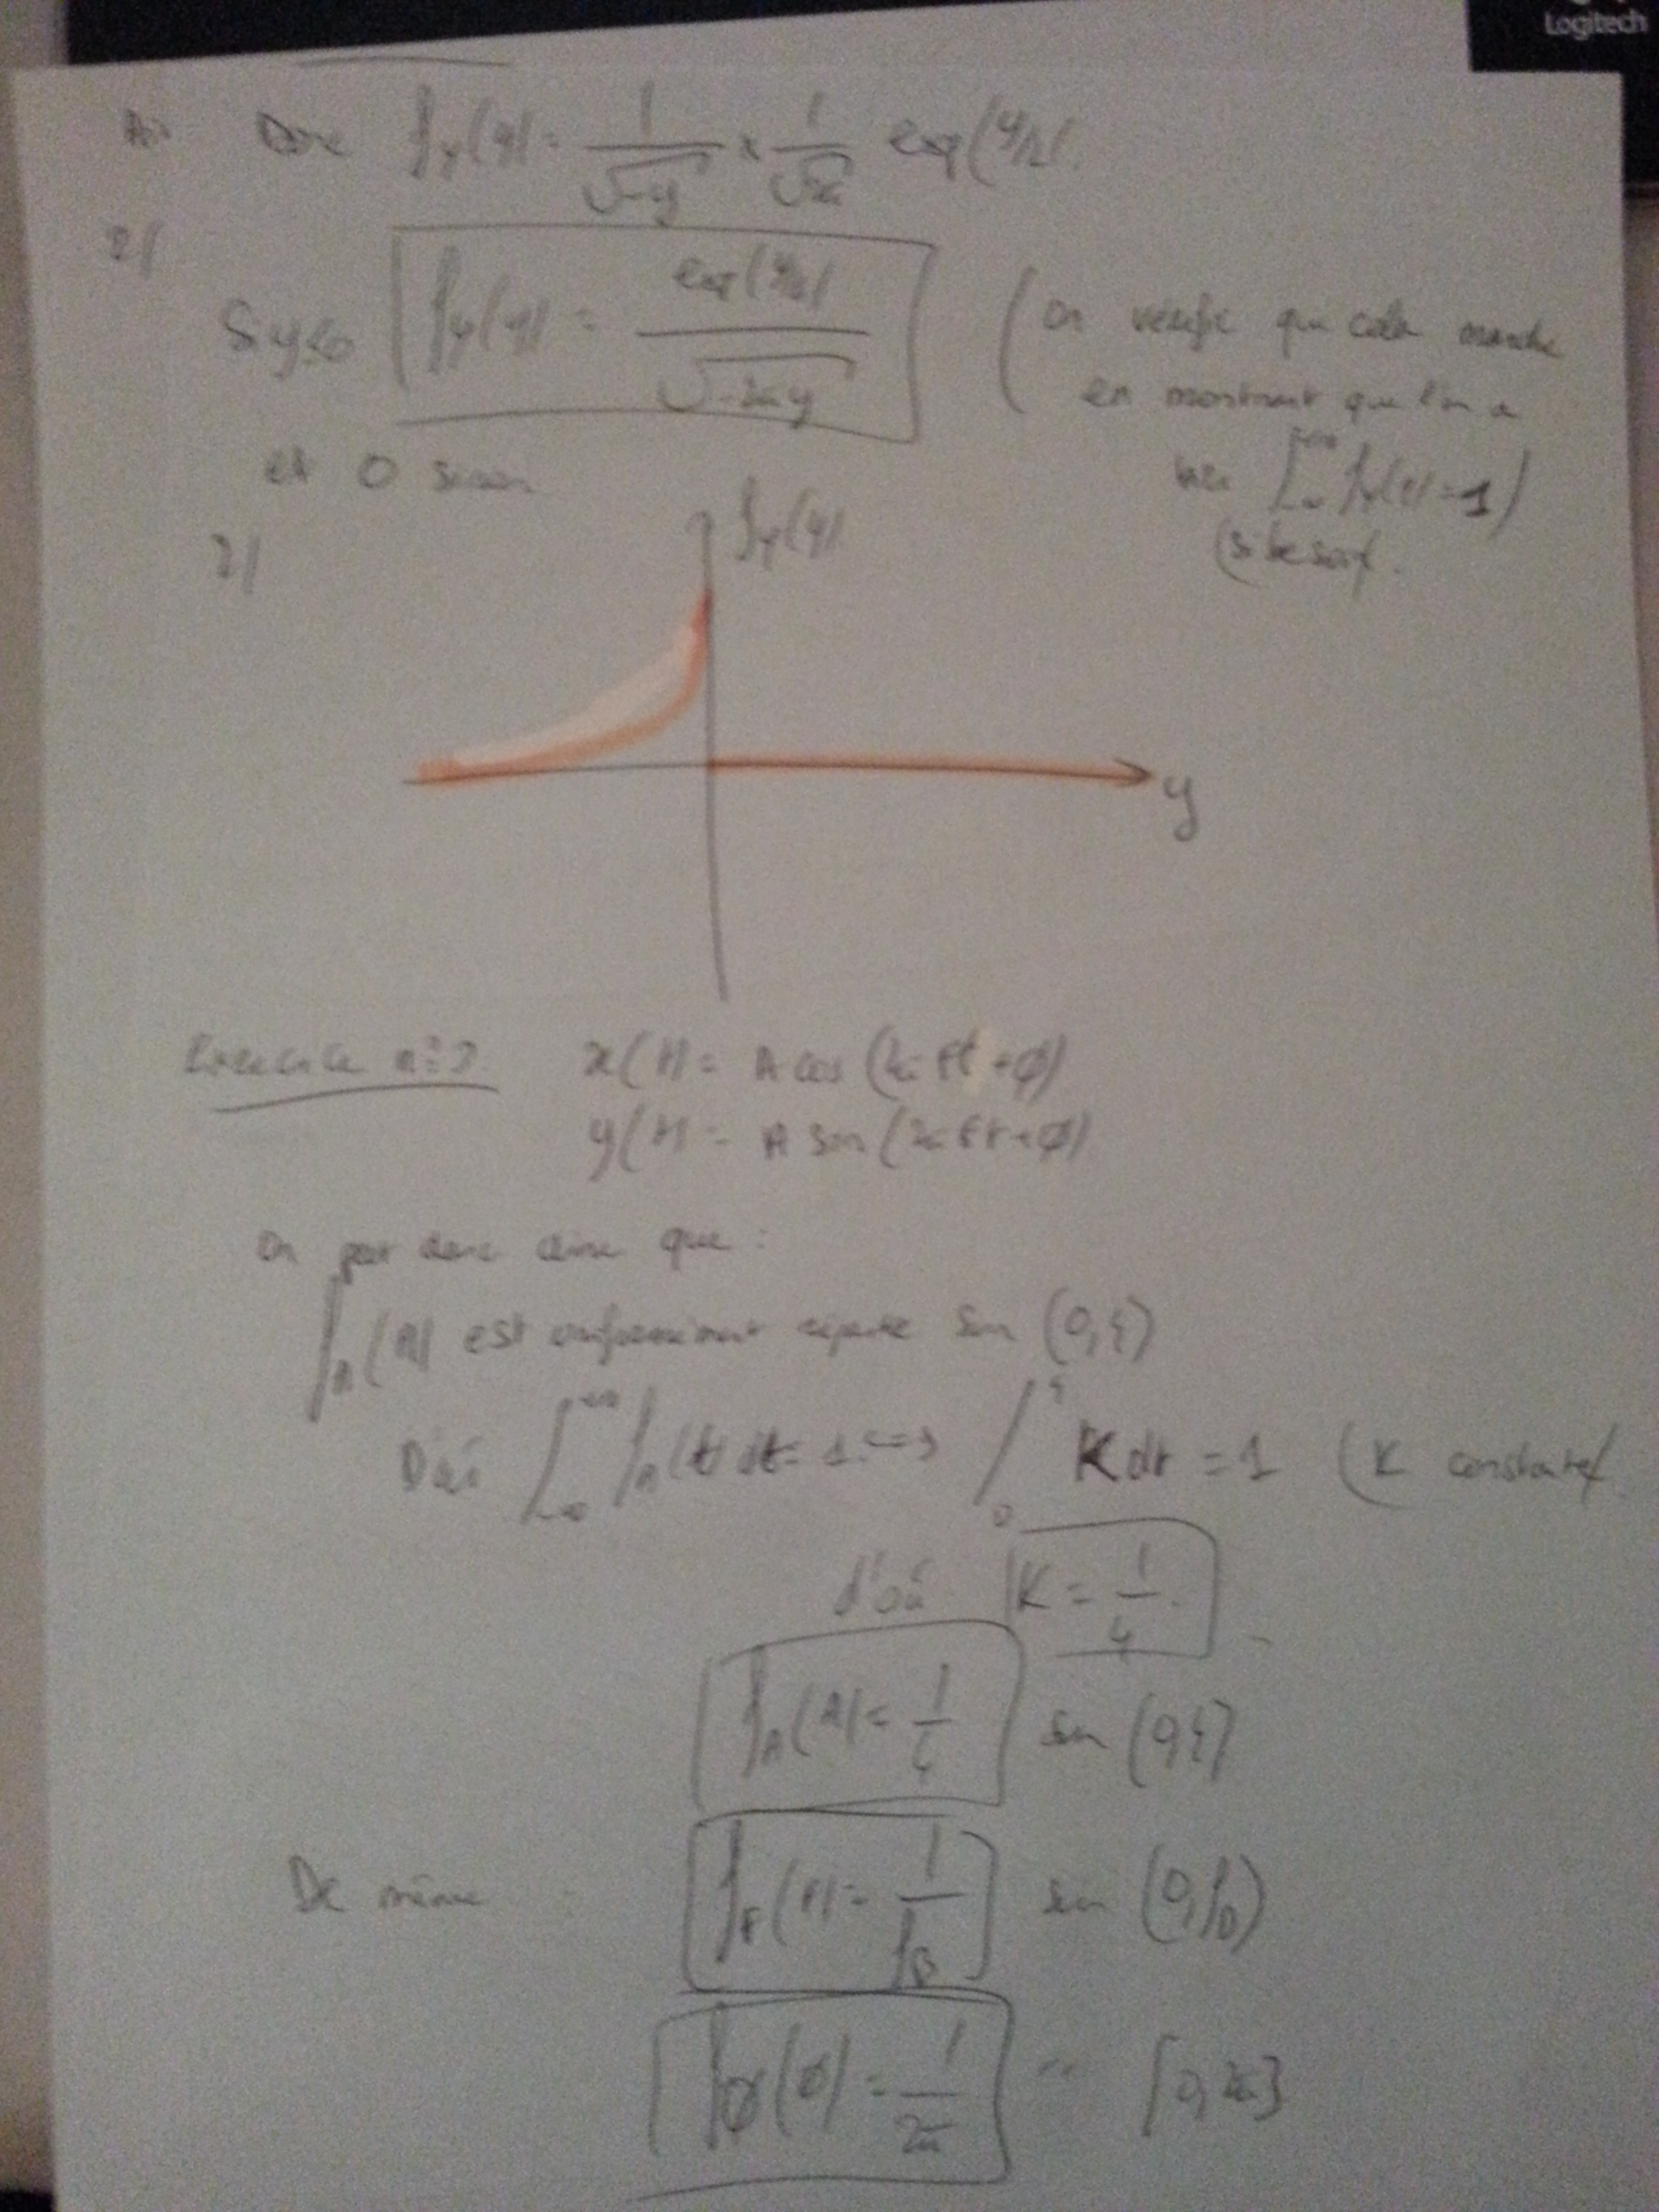 Logitech
Donc f_Y(y) = 1/√-y × 1/√2π exp(y/2)
2/
Si y≤0 f_Y(y) = exp(y/2)/√-2πy (on vérifie que cela marche
en montrant que l'on a
et 0 sinon ∫_{-∞}^{+∞} f_Y(y) = 1)
(si besoin).
f_Y(y)
y
Exercice n°3 x(t) = A cos(2πFt + Ø)
y(t) = A sin(2πFt + Ø)
On peut donc dire que :
f_A(A) est uniformément répartie sur (0,4)
D'où ∫_{-∞}^{+∞} f_A(t) dt = 1 <=> ∫_0^4 K dt = 1 (K constante).
d'où K = 1/4.
f_A(A) = 1/4 sur (0,4)
De même : f_F(F) = 1/f_0 sur (0,f_0)
f_Ø(Ø) = 1/2π " [0,2π]